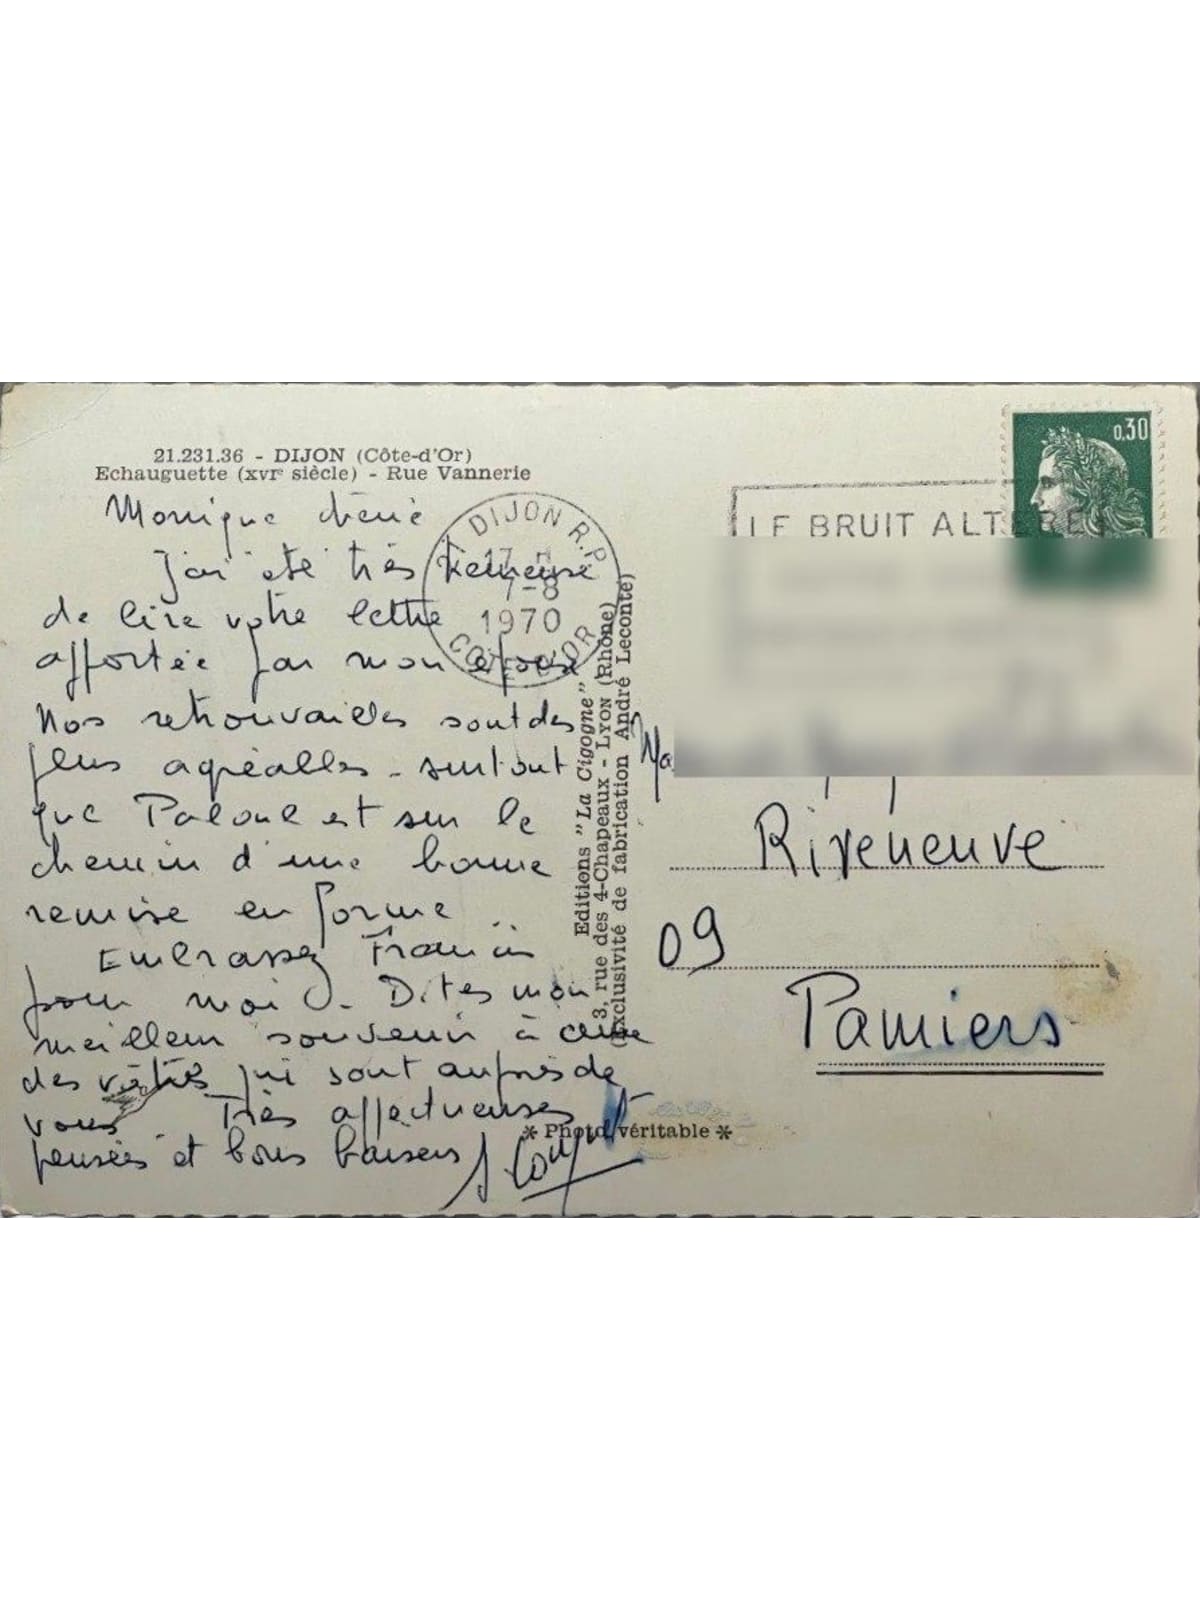 21.231.36 - DIJON (Côte-d'Or)
Echauguette (XVIe siècle) - Rue Vannerie
Monique chérie
J'ai été très heureuse
de lire votre lettre
apportée par mon époux
Nos retrouvailles sont des
plus agréables - surtout
que Paloul est sur le
chemin d'une bonne
remise en forme.
Embrassez Francis
pour moi. Dites mon
meilleur souvenir à ceux
des vôtres qui sont auprès de
vous Très affectueuses
pensées et bons baisers
DIJON R.P.
7-8
1970
COTE D'OR
Editions "La Cigogne"
3, rue des 4-Chapeaux - LYON (Rhône)
(Exclusivité de fabrication André Leconte)
* Photo véritable *
0,30
LE BRUIT ALTERE
Riveneuve
09
Pamiers